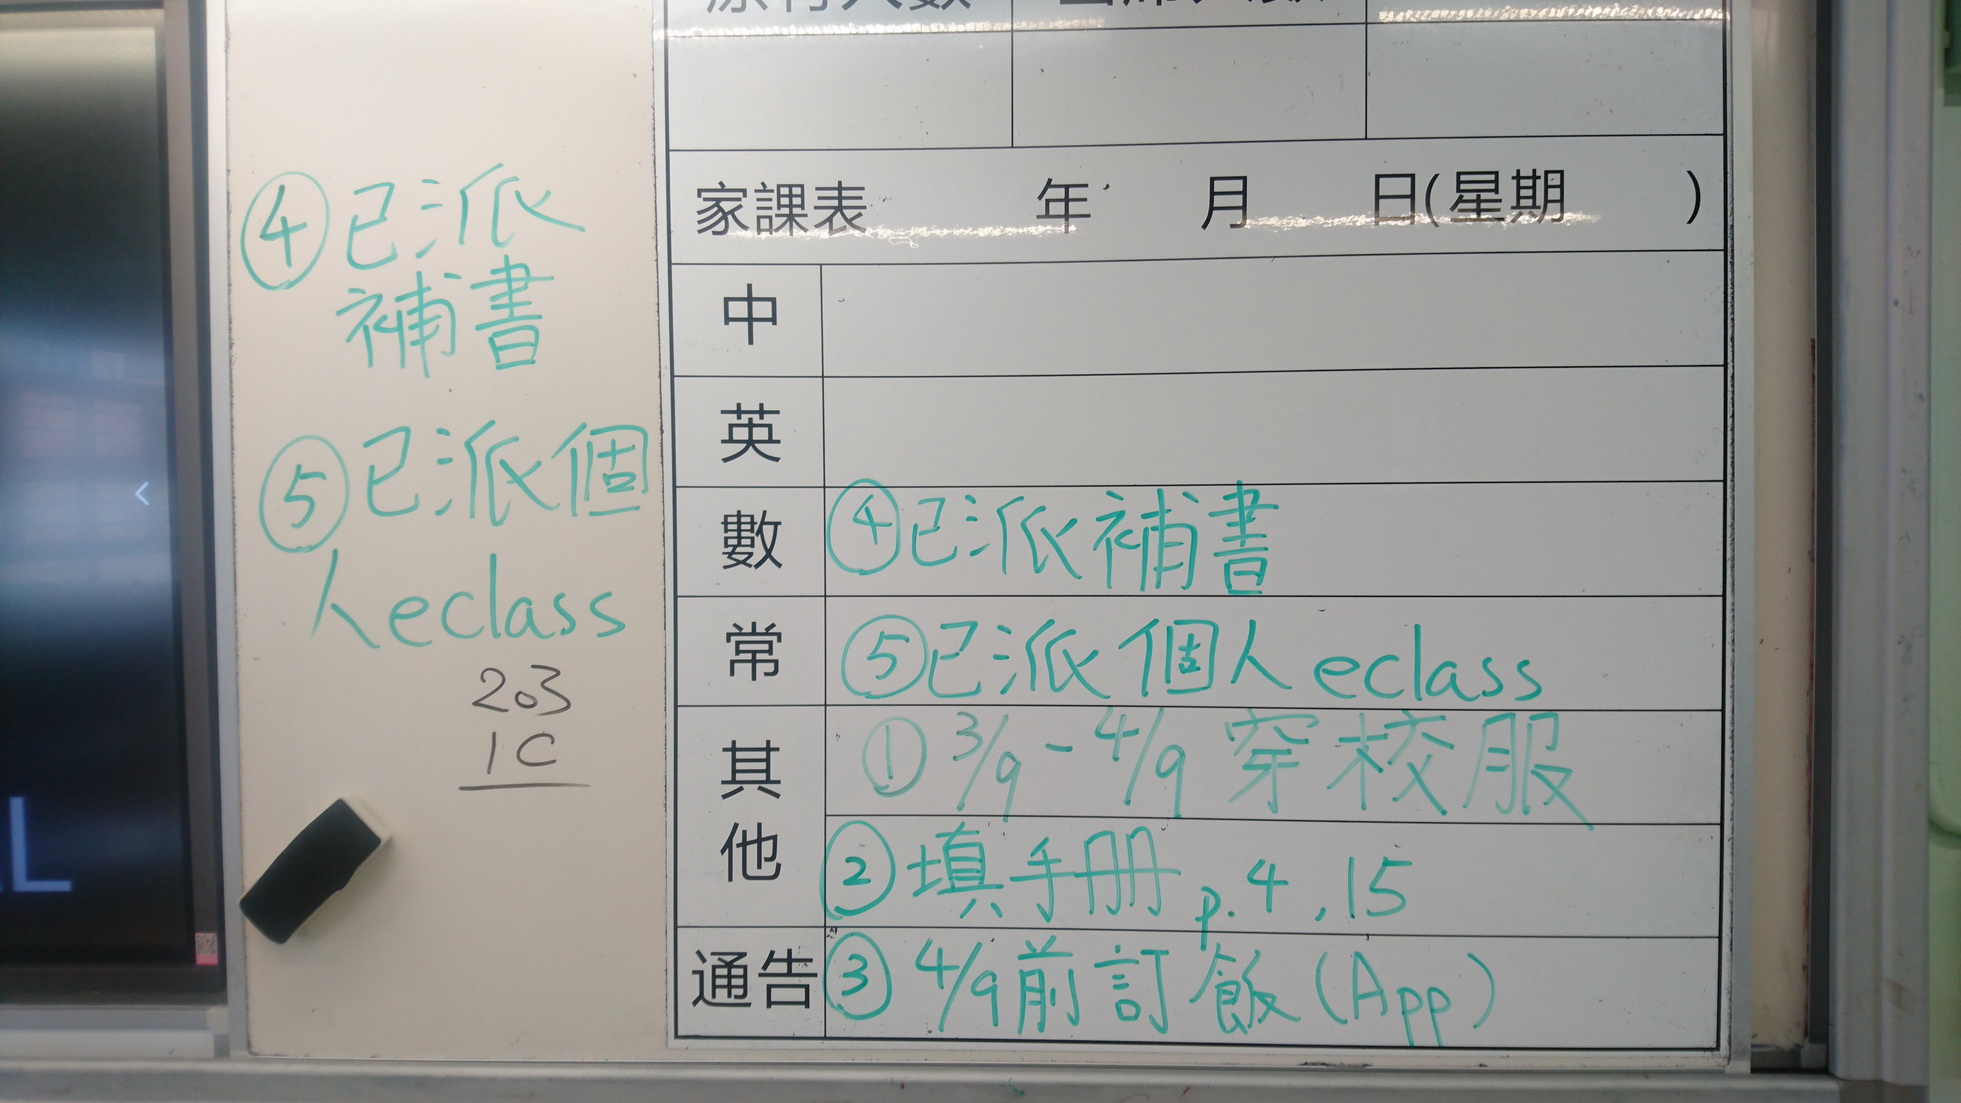 原有人數 出席人數
家課表 年 月 日(星期 )
中
英
數 ④已派補書
常 ⑤已派個人eclass
其他 ①3/9-4/9 穿校服
②填手冊 p.4,15
通告 ③4/9前訂飯(App)
④已派
補書
⑤已派個
人eclass
203
1C
L